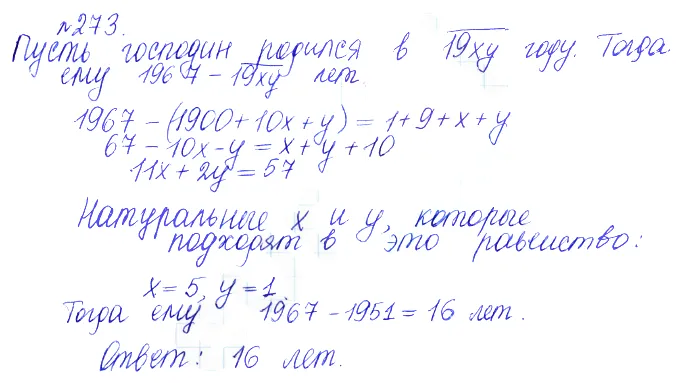 №273.
Пусть господин родился в 19xy году. Тогда
ему 1967 - 19xy лет.
1967 - (1900 + 10x + y) = 1 + 9 + x + y
67 - 10x - y = x + y + 10
11x + 2y = 57
Натуральные x и y, которые
подходят в это равенство:
x = 5, y = 1.
Тогда ему 1967 - 1951 = 16 лет.
Ответ: 16 лет.